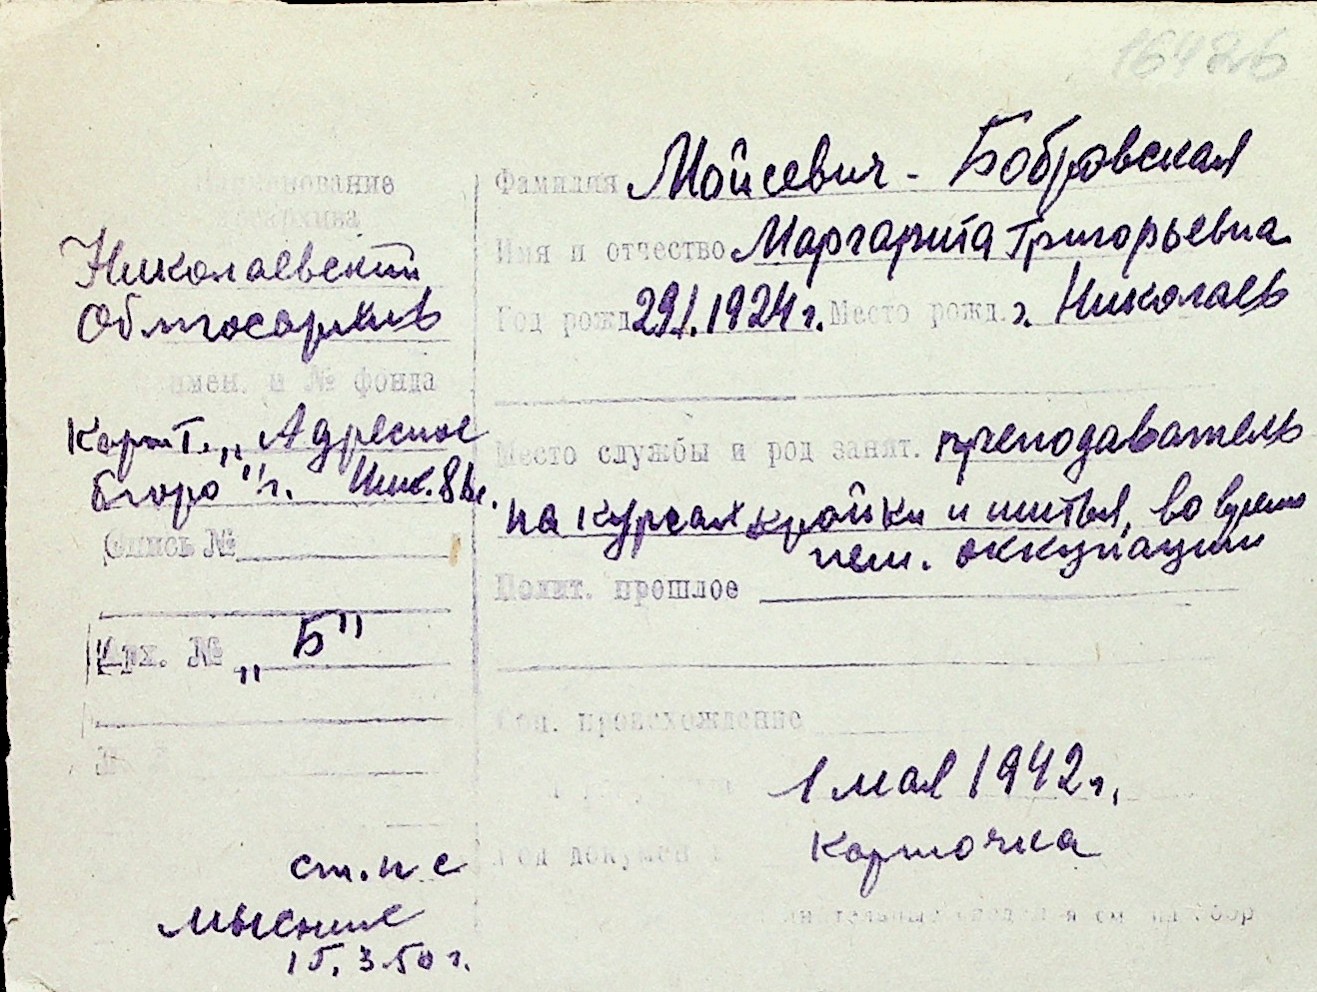 Наименование
госархива
Николаевский
Облгосархив
наимен. и № фонда
Карт. „Адресное
бюро" г. Ник.
Опись №
Арх. № „Б"
№
ст. н с
15.3.50 г.
Фамилия Мойсевич - Бобровская
Имя и отчество Маргарита Григорьевна
Год рожд. 29/I.1924 г. Место рожд. г. Николаев
Место службы и род занят. преподаватель
на курсах кройки и шитья, во время
нем. оккупации
Полит. прошлое
Соц. происхождение
1 мая 1942 г.
Год документа карточка
дополнительные сведения см. на обор